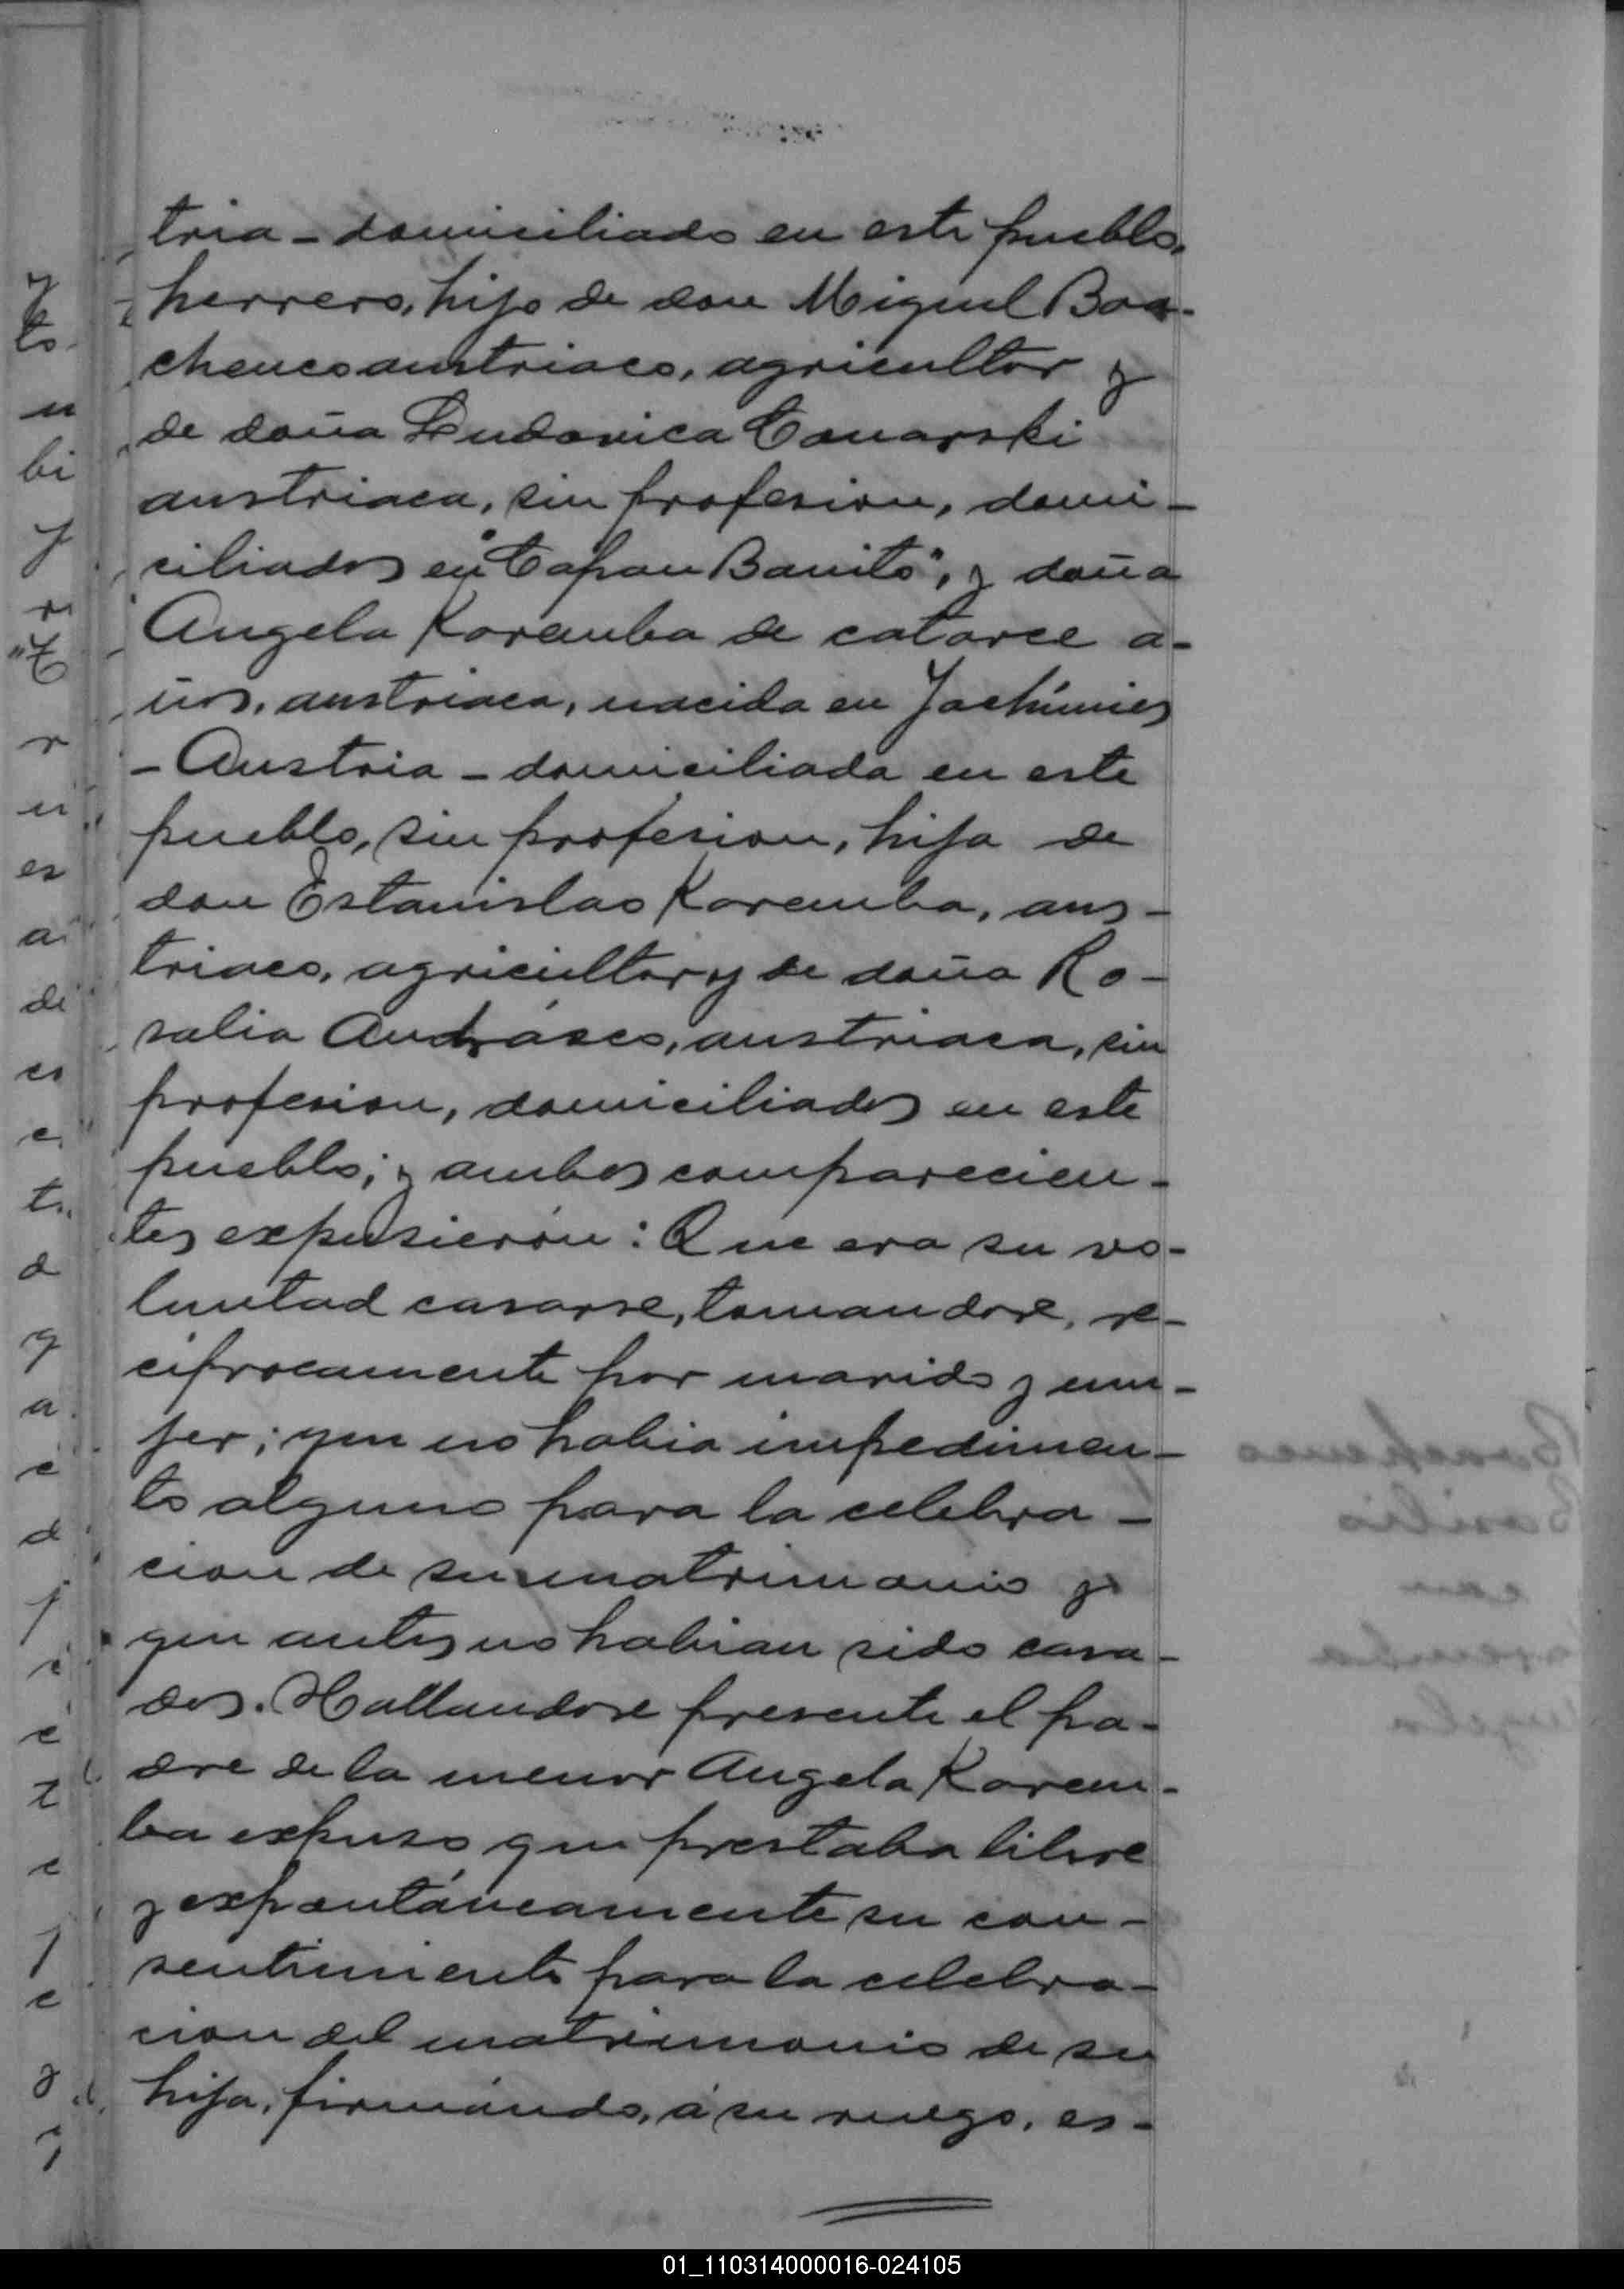 tria – domiciliado en este pueblo,
herrero, hijo de don Miguel Boa-
chenco austriaco, agricultor y
de doña Ludovica Conarski
austriaca, sin profesion, domi-
ciliados en "Tapon Bonito", y doña
Angela Koremba de catorce a-
ños, austriaca, nacida en
– Austria – domiciliada en este
pueblo, sin profesion, hija de
don Estanislao Koremba, aus-
triaco, agricultor y de doña Ro-
salia austriaca, sin
profesion, domiciliados en este
pueblo; y ambos comparecien-
tes expusieron: Que era su vo-
luntad casarse, tomandose, re-
ciprocamente por marido y mu-
jer; que no habia impedimen-
to alguno para la celebra-
cion de su matrimonio y
que antes no habian sido casa-
dos. Hallandose presente el pa-
dre de la menor Angela Korem-
ba expuso que prestaba libre
y expontáneamente su con-
sentimiento para la celebra-
cion del matrimonio de su
hija, firmando, á su ruego, es-
01_110314000016-024105